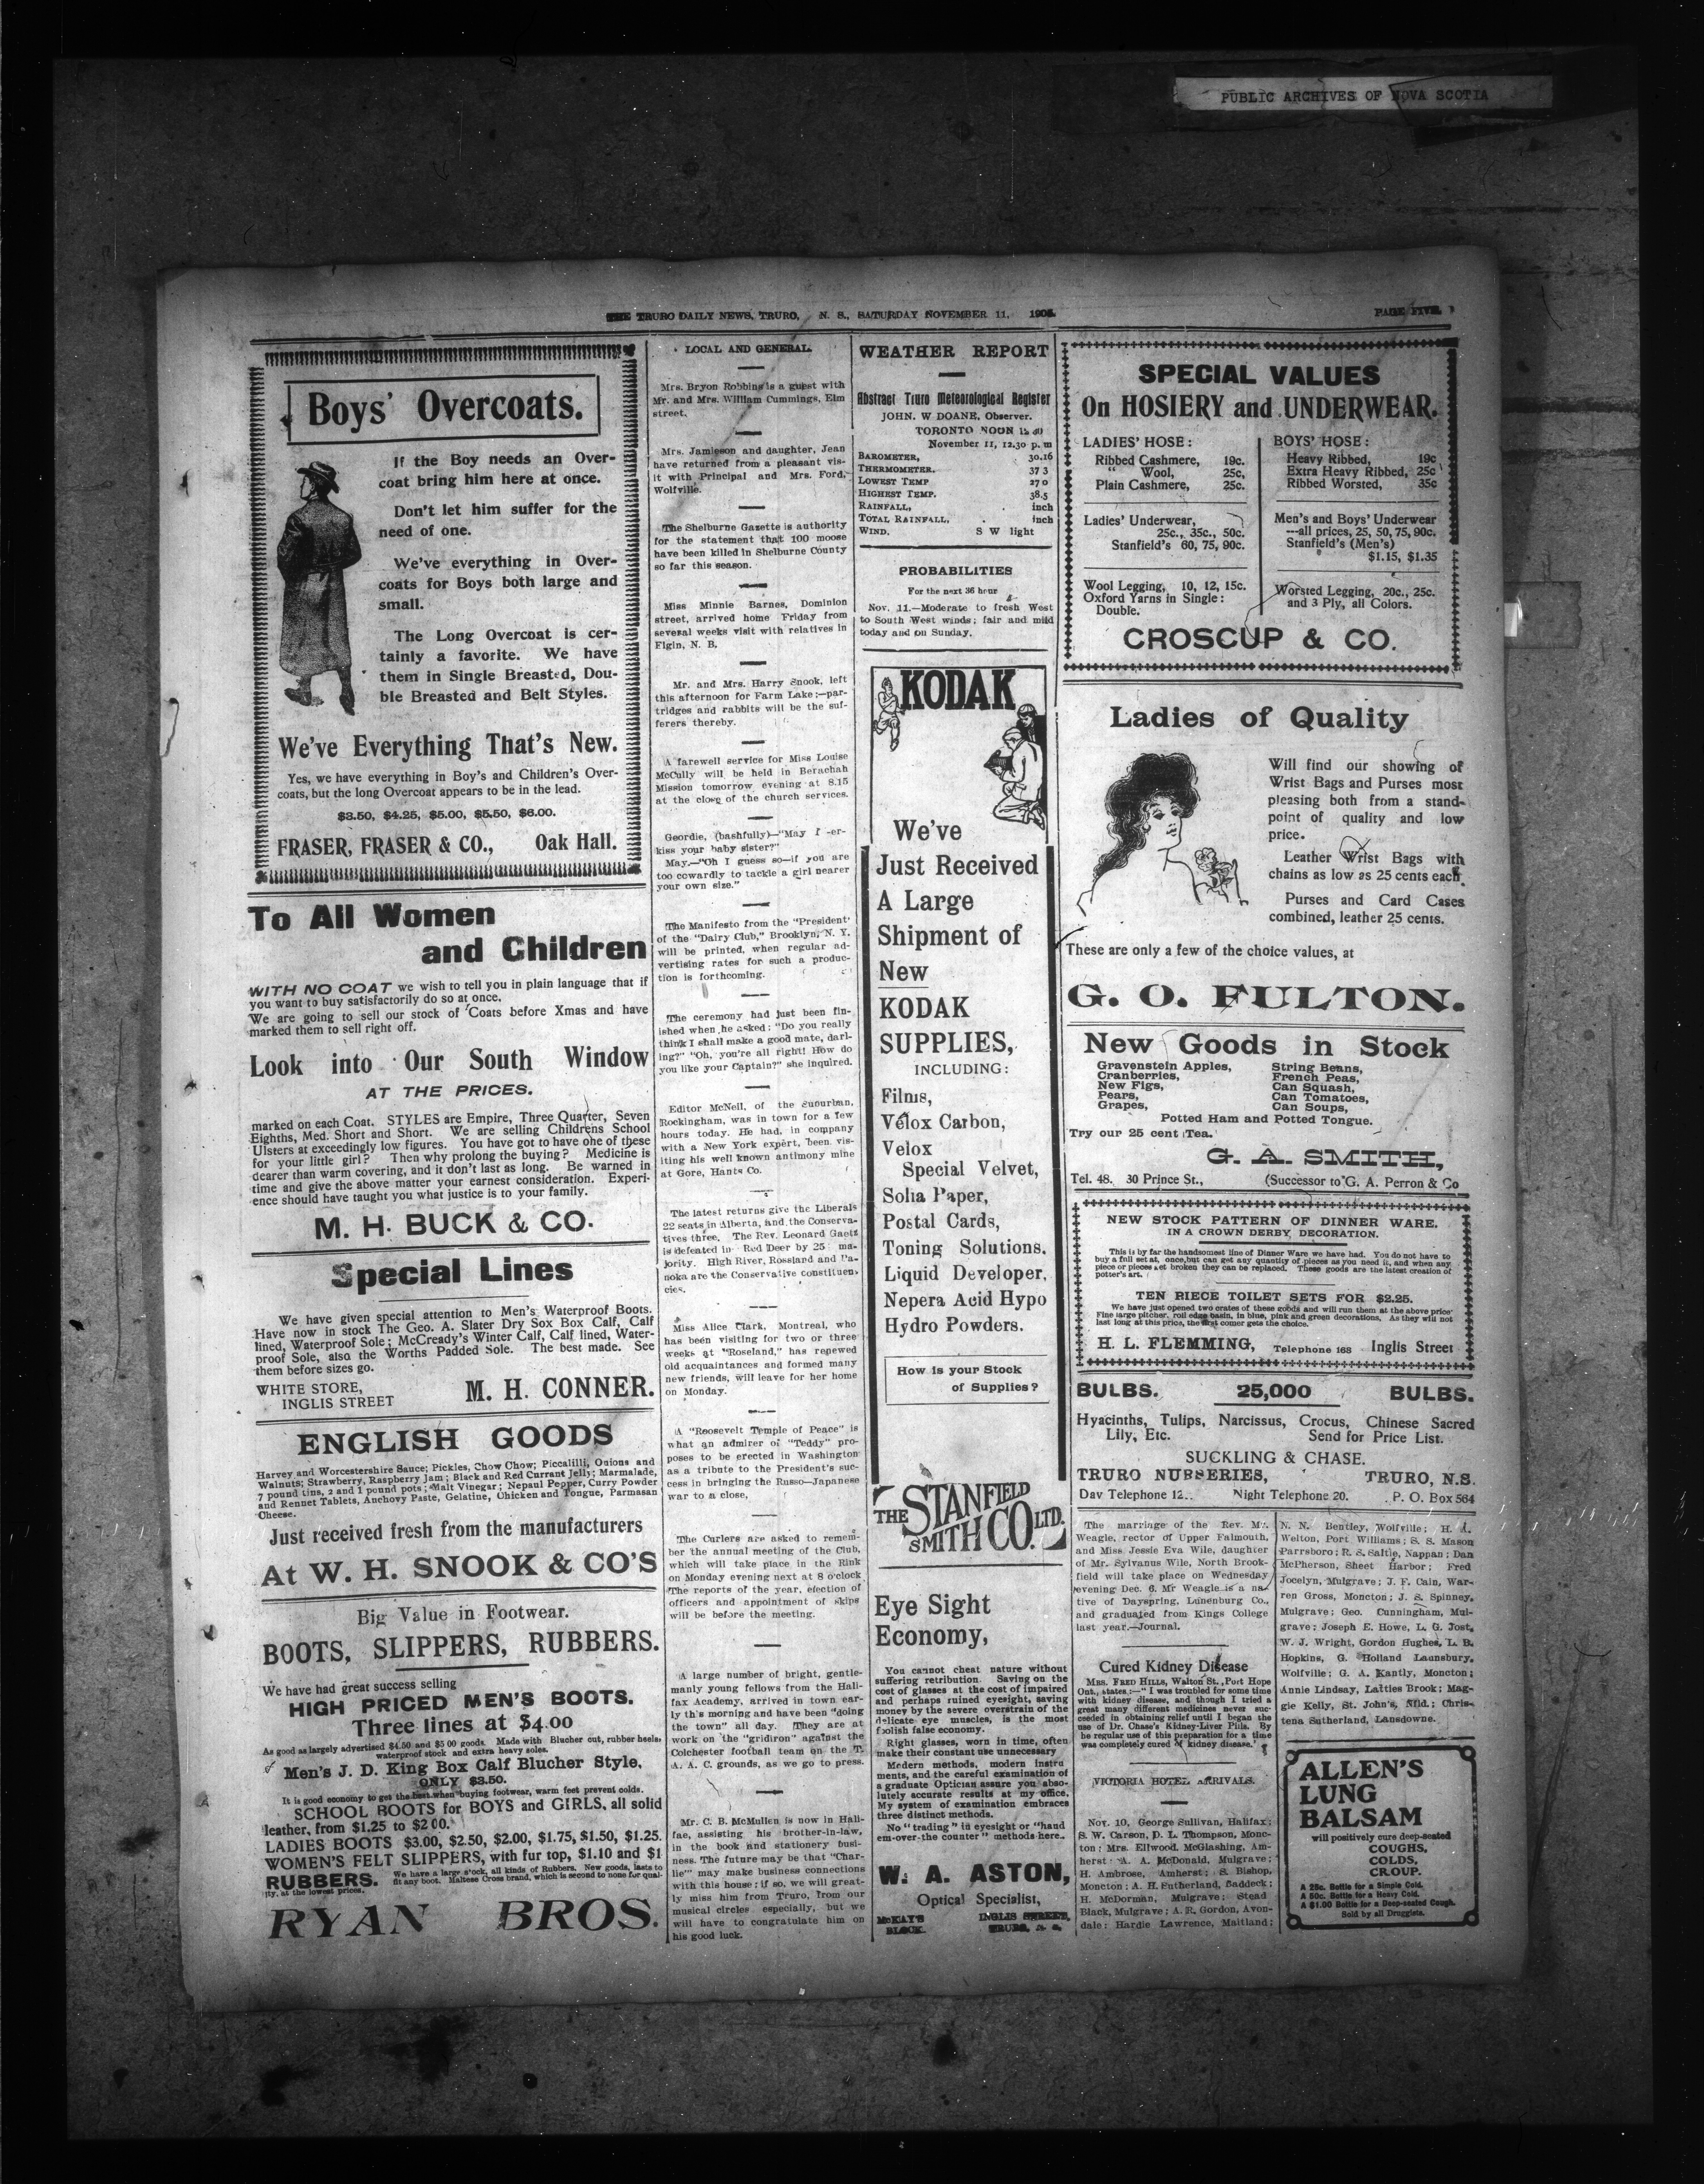 PUBLIC ARCHIVES OF NOVA SCOTIA
THE TRURO DAILY NEWS, TRURO, N. S., SATURDAY NOVEMBER 11, 1905.
PAGE FIVE
Boys' Overcoats.
If the Boy needs an Over-
coat bring him here at once.
Don't let him suffer for the
need of one.
We've everything in Over-
coats for Boys both large and
small.
The Long Overcoat is cer-
tainly a favorite. We have
them in Single Breasted, Dou-
ble Breasted and Belt Styles.
We've Everything That's New.
Yes, we have everything in Boy's and Children's Over-
coats, but the long Overcoat appears to be in the lead.
$3.50, $4.25, $5.00, $5.50, $6.00.
FRASER, FRASER & CO., Oak Hall.
To All Women
and Children
WITH NO COAT we wish to tell you in plain language that if
you want to buy satisfactorily do so at once.
We are going to sell our stock of Coats before Xmas and have
marked them to sell right off.
Look into Our South Window
AT THE PRICES.
marked on each Coat. STYLES are Empire, Three Quarter, Seven
Eighths, Med. Short and Short. We are selling Childrens School
Ulsters at exceedingly low figures. You have got to have one of these
for your little girl? Then why prolong the buying? Medicine is
dearer than warm covering, and it don't last as long. Be warned in
time and give the above matter your earnest consideration. Experi-
ence should have taught you what justice is to your family.
M. H. BUCK & CO.
Special Lines
We have given special attention to Men's Waterproof Boots.
Have now in stock The Geo. A. Slater Dry Sox Box Calf, Calf
lined, Waterproof Sole; McCready's Winter Calf, Calf lined, Water-
proof Sole, also the Worths Padded Sole. The best made. See
them before sizes go.
WHITE STORE,
INGLIS STREET
M. H. CONNER.
ENGLISH GOODS
Harvey and Worcestershire Sauce; Pickles, Chow Chow; Piccalilli, Onions and
Walnuts; Strawberry, Raspberry Jam; Black and Red Currant Jelly; Marmalade,
7 pound tins, 2 and 1 pound pots; Malt Vinegar; Nepaul Pepper, Curry Powder
and Rennet Tablets, Anchovy Paste, Gelatine, Chicken and Tongue, Parmasan
Cheese.
Just received fresh from the manufacturers
At W. H. SNOOK & CO'S
Big Value in Footwear.
BOOTS, SLIPPERS, RUBBERS.
We have had great success selling
HIGH PRICED MEN'S BOOTS.
Three lines at $4.00
As good as largely advertised $4.50 and $5 00 goods. Made with Blucher cut, rubber heels,
waterproof stock and extra heavy soles.
Men's J. D. King Box Calf Blucher Style,
ONLY $3.50.
It is good economy to get the best when buying footwear, warm feet prevent colds.
SCHOOL BOOTS for BOYS and GIRLS, all solid
leather, from $1.25 to $2 00.
LADIES BOOTS $3.00, $2.50, $2.00, $1.75, $1.50, $1.25.
WOMEN'S FELT SLIPPERS, with fur top, $1.10 and $1
RUBBERS. We have a large stock, all kinds of Rubbers. New goods, lasts to
fit any boot. Maltese Cross brand, which is second to none for qual-
ity, at the lowest prices.
RYAN BROS.
LOCAL AND GENERAL.
Mrs. Bryon Robbins is a guest with
Mr. and Mrs. William Cummings, Elm
street.
Mrs. Jamieson and daughter, Jean
have returned from a pleasant vis-
it with Principal and Mrs. Ford,
Wolfville.
The Shelburne Gazette is authority
for the statement that 100 moose
have been killed in Shelburne County
so far this season.
Miss Minnie Barnes, Dominion
street, arrived home Friday from
several weeks visit with relatives in
Elgin, N. B.
Mr. and Mrs. Harry Snook, left
this afternoon for Farm Lake;—par-
tridges and rabbits will be the suf-
ferers thereby.
A farewell service for Miss Louise
McCully will be held in Berachah
Mission tomorrow evening at 8.15
at the close of the church services.
Geordie, (bashfully)—"May I -er-
kiss your baby sister?"
May.—"Oh I guess so—if you are
too cowardly to tackle a girl nearer
your own size."
The Manifesto from the "President'
of the "Dairy Club," Brooklyn, N. Y.
will be printed, when regular ad-
vertising rates for such a produc-
tion is forthcoming.
The ceremony had just been fin-
ished when he asked: "Do you really
think I shall make a good mate, darl-
ing?" "Oh, you're all right! How do
you like your Captain?" she inquired.
Editor McNeil, of the Suburban,
Rockingham, was in town for a few
hours today. He had, in company
with a New York expert, been vis-
iting his well known antimony mine
at Gore, Hants Co.
The latest returns give the Liberals
22 seats in Alberta, and the Conserva-
tives three. The Rev. Leonard Gaetz
is defeated in Red Deer by 25 ma-
jority. High River, Rossland and Pa-
noka are the Conservative constituen-
cies.
Miss Alice Clark, Montreal, who
has been visiting for two or three
weeks at "Roseland," has renewed
old acquaintances and formed many
new friends, will leave for her home
on Monday.
A "Roosevelt Temple of Peace" is
what an admirer of "Teddy" pro-
poses to be erected in Washington
as a tribute to the President's suc-
cess in bringing the Russo—Japanese
war to a close.
The Curlers are asked to remem-
ber the annual meeting of the Club,
which will take place in the Rink
on Monday evening next at 8 o'clock
The reports of the year, election of
officers and appointment of skips
will be before the meeting.
A large number of bright, gentle-
manly young fellows from the Hali-
fax Academy, arrived in town ear-
ly th's morning and have been "doing
the town" all day. They are at
work on the "gridiron" against the
Colchester football team on the T.
A. A. C. grounds, as we go to press.
Mr. C. B. McMullen is now in Hali-
fae, assisting his brother-in-law,
in the book and stationery busi-
ness. The future may be that "Char-
lie" may make business connections
with this house; if so, we will great-
ly miss him from Truro, from our
musical circles especially, but we
will have to congratulate him on
his good luck.
WEATHER REPORT
Abstract Truro Meteorological Register
JOHN. W DOANE, Observer.
TORONTO NOON 12 30
November 11, 12.30 p. m
BAROMETER, 30.16
THERMOMETER. 37 3
LOWEST TEMP 27 0
HIGHEST TEMP. 38.5
RAINFALL, inch
TOTAL RAINFALL, inch
WIND. S W light
PROBABILITIES
For the next 36 hour
Nov. 11.—Moderate to fresh West
to South West winds; fair and mild
today and on Sunday.
KODAK
We've
Just Received
A Large
Shipment of
New
KODAK
SUPPLIES,
INCLUDING:
Films,
Velox Carbon,
Velox
Special Velvet,
Solia Paper,
Postal Cards,
Toning Solutions.
Liquid Developer,
Nepera Acid Hypo
Hydro Powders.
How is your Stock
of Supplies?
THE STANFIELD
SMITH CO. LTD.
Eye Sight
Economy,
You cannot cheat nature without
suffering retribution. Saving on the
cost of glasses at the cost of impaired
and perhaps ruined eyesight, saving
money by the severe overstrain of the
delicate eye muscles, is the most
foolish false economy.
Right glasses, worn in time, often
make their constant use unnecessary
Modern methods, modern instru
ments, and the careful examination of
a graduate Optician assure you abso-
lutely accurate results at my office.
My system of examination embraces
three distinct methods.
No "trading" in eyesight or "hand
em-over-the counter" methods here.
W. A. ASTON,
Optical Specialist,
McKAY'S
BLOCK.
INGLIS STREET,
TRURO, N. S.
SPECIAL VALUES
On HOSIERY and UNDERWEAR.
LADIES' HOSE:
Ribbed Cashmere, 19c.
" Wool, 25c,
Plain Cashmere, 25c.
Ladies' Underwear,
25c., 35c., 50c.
Stanfield's 60, 75, 90c.
Wool Legging, 10, 12, 15c.
Oxford Yarns in Single:
Double.
BOYS' HOSE:
Heavy Ribbed, 19c
Extra Heavy Ribbed, 25c
Ribbed Worsted, 35c
Men's and Boys' Underwear
---all prices, 25, 50, 75, 90c.
Stanfield's (Men's)
$1.15, $1.35
Worsted Legging, 20c., 25c.
and 3 Ply, all Colors.
CROSCUP & CO.
Ladies of Quality
Will find our showing of
Wrist Bags and Purses most
pleasing both from a stand-
point of quality and low
price.
Leather Wrist Bags with
chains as low as 25 cents each.
Purses and Card Cases
combined, leather 25 cents.
These are only a few of the choice values, at
G. O. FULTON.
New Goods in Stock
Gravenstein Apples,
Cranberries,
New Figs,
Pears,
Grapes,
String Beans,
French Peas,
Can Squash,
Can Tomatoes,
Can Soups,
Potted Ham and Potted Tongue.
Try our 25 cent Tea.
G. A. SMITH,
Tel. 48. 30 Prince St., (Successor to G. A. Perron & Co
NEW STOCK PATTERN OF DINNER WARE.
IN A CROWN DERBY DECORATION.
This is by far the handsomest line of Dinner Ware we have had. You do not have to
buy a full set at, once, but can get any quantity of pieces as you need it, and when any
piece or pieces get broken they can be replaced. These goods are the latest creation of
potter's art.
TEN PIECE TOILET SETS FOR $2.25.
We have just opened two crates of these goods and will run them at the above price
Fine large pitcher, roll edge basin, in blue, pink and green decorations. As they will not
last long at this price, the first comer gets the choice.
H. L. FLEMMING, Telephone 168 Inglis Street
BULBS. 25,000 BULBS.
Hyacinths, Tulips, Narcissus, Crocus, Chinese Sacred
Lily, Etc. Send for Price List.
SUCKLING & CHASE.
TRURO NURSERIES, TRURO, N.S.
Day Telephone 12.. Night Telephone 20. P. O. Box 564
The marriage of the Rev. Mr.
Weagle, rector of Upper Falmouth,
and Miss Jessie Eva Wile, daughter
of Mr. Sylvanus Wile, North Brook-
field will take place on Wednesday
evening Dec. 6. Mr Weagle is a na-
tive of Dayspring, Lunenburg Co.,
and graduated from Kings College
last year.—Journal.
Cured Kidney Disease
MRS. FRED HILLS, Walton St., Port Hope
Ont., states:—"I was troubled for some time
with kidney disease, and though I tried a
great many different medicines never suc-
ceeded in obtaining relief until I began the
use of Dr. Chase's Kidney-Liver Pills. By
be regular use of this preparation for a time
was completely cured of kidney disease."
VICTORIA HOTEL ARRIVALS.
Nov. 10, George Sullivan, Halifax;
S. W. Carson, D. L. Thompson, Monc-
ton; Mrs. Ellwood, McGlashing, Am-
herst; A. A. McDonald, Mulgrave;
H. Ambrose, Amherst; S. Bishop,
Moncton; A. H. Sutherland, Baddeck;
H. McDorman, Mulgrave; Stead
Black, Mulgrave; A. R. Gordon, Avon-
dale; Hardie Lawrence, Maitland;
N. N. Bentley, Wolfville; H. A.
Welton, Port Williams; S. S. Mason
Parrsboro; R. S. Saltle, Nappan; Dan
McPherson, Sheet Harbor; Fred
Jocelyn, Mulgrave; J. F. Cain, War-
ren Gross, Moncton; J. S. Spinney,
Mulgrave; Geo. Cunningham, Mul-
grave; Joseph E. Howe, L. G. Jost,
W. J. Wright, Gordon Hughes, L. B.
Hopkins, G. Holland Launsbury,
Wolfville; G. A. Kantly, Moncton;
Annie Lindsay, Latties Brook; Mag-
gie Kelly, St. John's, Nfld.; Chris-
tena Sutherland, Lansdowne.
ALLEN'S
LUNG
BALSAM
will positively cure deep-seated
COUGHS,
COLDS,
CROUP.
A 25c. Bottle for a Simple Cold.
A 50c. Bottle for a Heavy Cold.
A $1.00 Bottle for a Deep-seated Cough.
Sold by all Druggists.